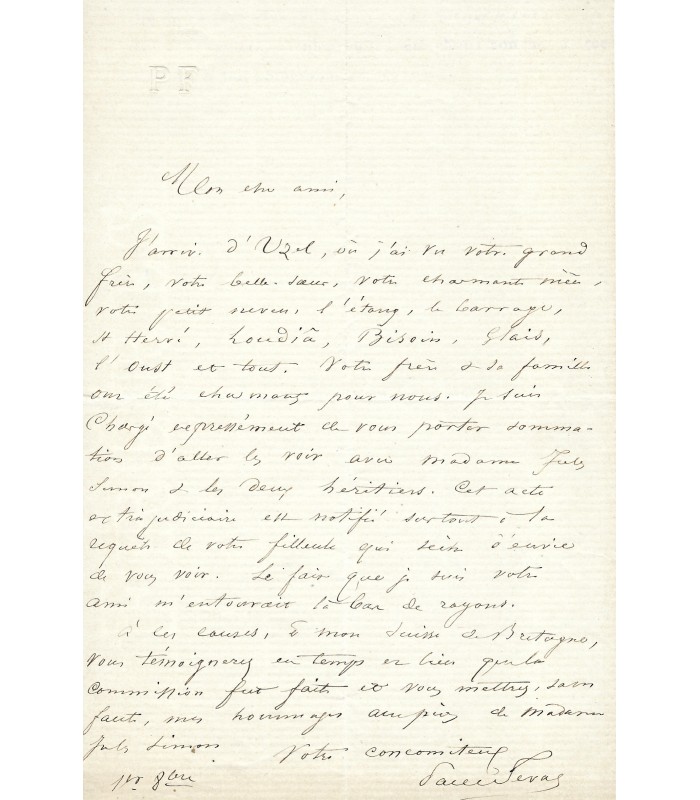 P F
Mon cher ami,
J'arrive d'Uzel, où j'ai vu votre grand
frère, votre belle-sœur, votre charmante nièce,
votre petit neveu, l'étang, le barrage,
St Hervé, Loudia, Bisoin, Glaid,
l'Oust et tout. Votre frère & sa famille
ont été charmans pour nous. Je suis
chargé expressément de vous porter somma-
tion d'aller les voir avec madame Jules
Simon & les deux héritiers. Cet acte
extrajudiciaire est notifié surtout à la
requête de votre filleule qui sèche d'envie
de vous voir. Le fait que je suis votre
ami m'entourait là bas de rayons.
à ces causes, mon Suisse de Bretagne,
vous témoignerez en temps et lieu que la
commission fut faite et vous mettrez, sans
faute, mes hommages aux pieds de Madame
Jules Simon
Votre
Paul Féval
1er 8bre